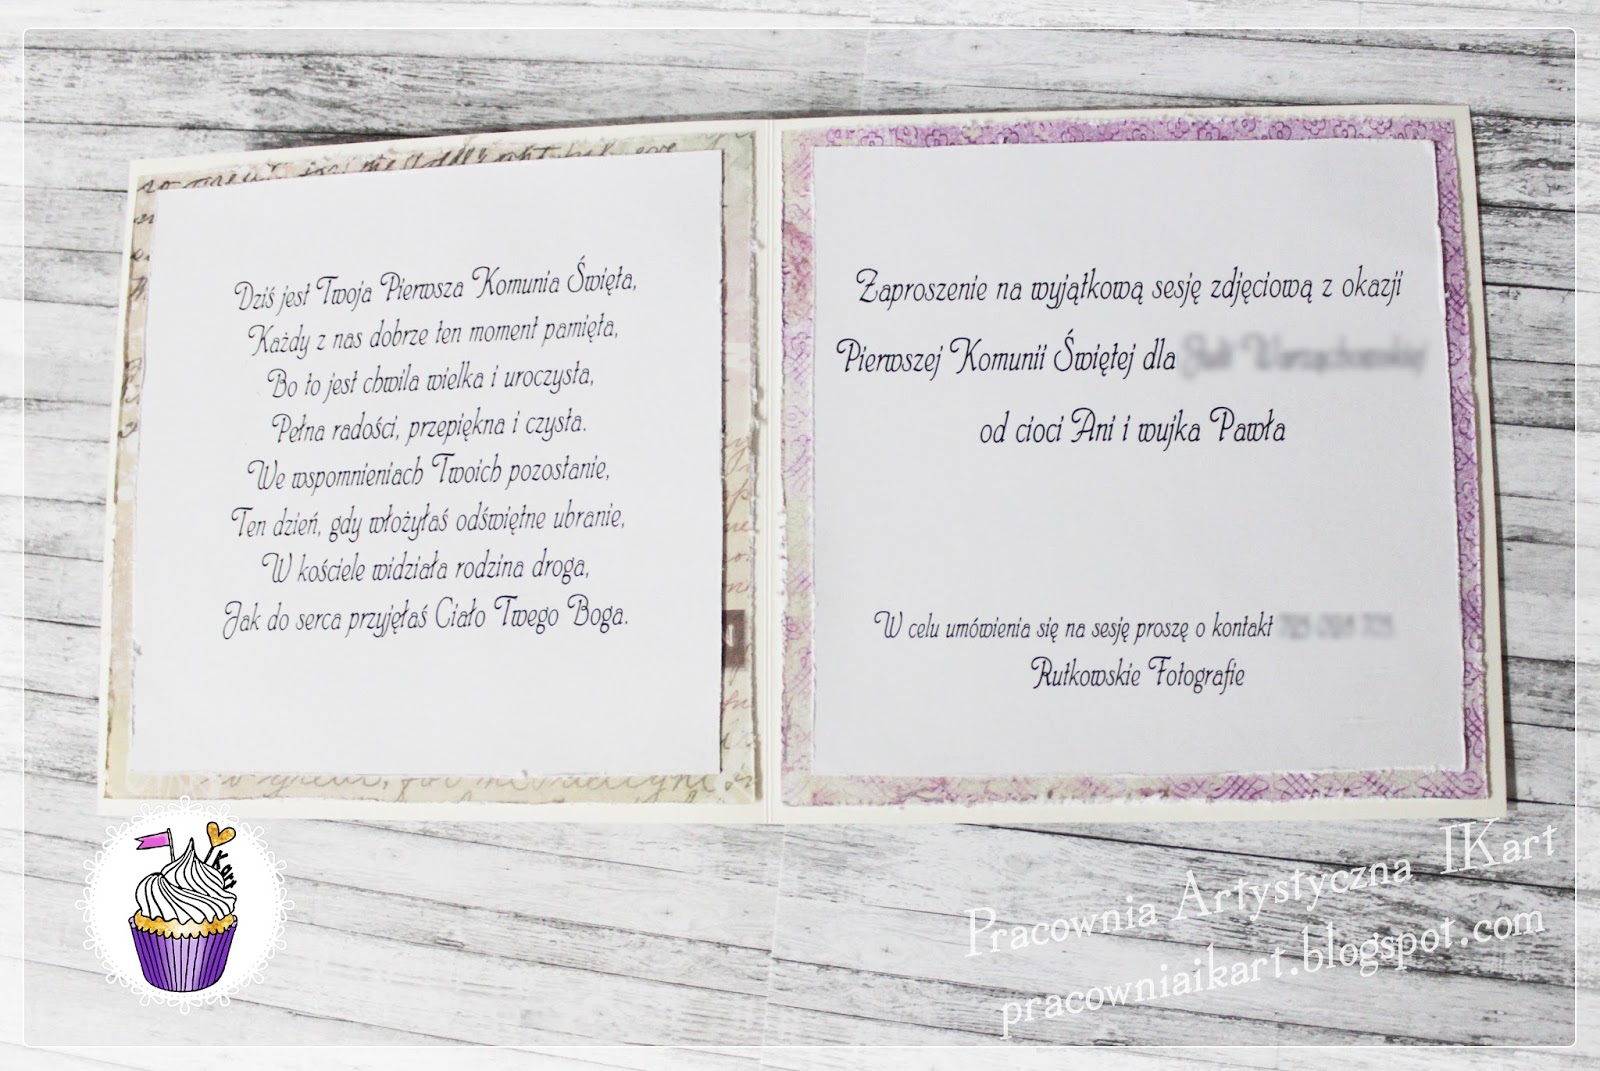 Dziś jest Twoja Pierwsza Komunia Święta,
Każdy z nas dobrze ten moment pamięta,
Bo to jest chwila wielka i uroczysta,
Pełna radości, przepiękna i czysta.
We wspomnieniach Twoich pozostanie,
Ten dzień, gdy włożyłaś odświętne ubranie,
W kościele widziała rodzina droga,
Jak do serca przyjęłaś Ciało Twego Boga.
Zaproszenie na wyjątkową sesję zdjęciową z okazji
Pierwszej Komunii Świętej dla
od cioci Ani i wujka Pawła
W celu umówienia się na sesję proszę o kontakt
Rutkowskie Fotografie
Kart
Pracownia Artystyczna IKart
pracowniaikart.blogspot.com